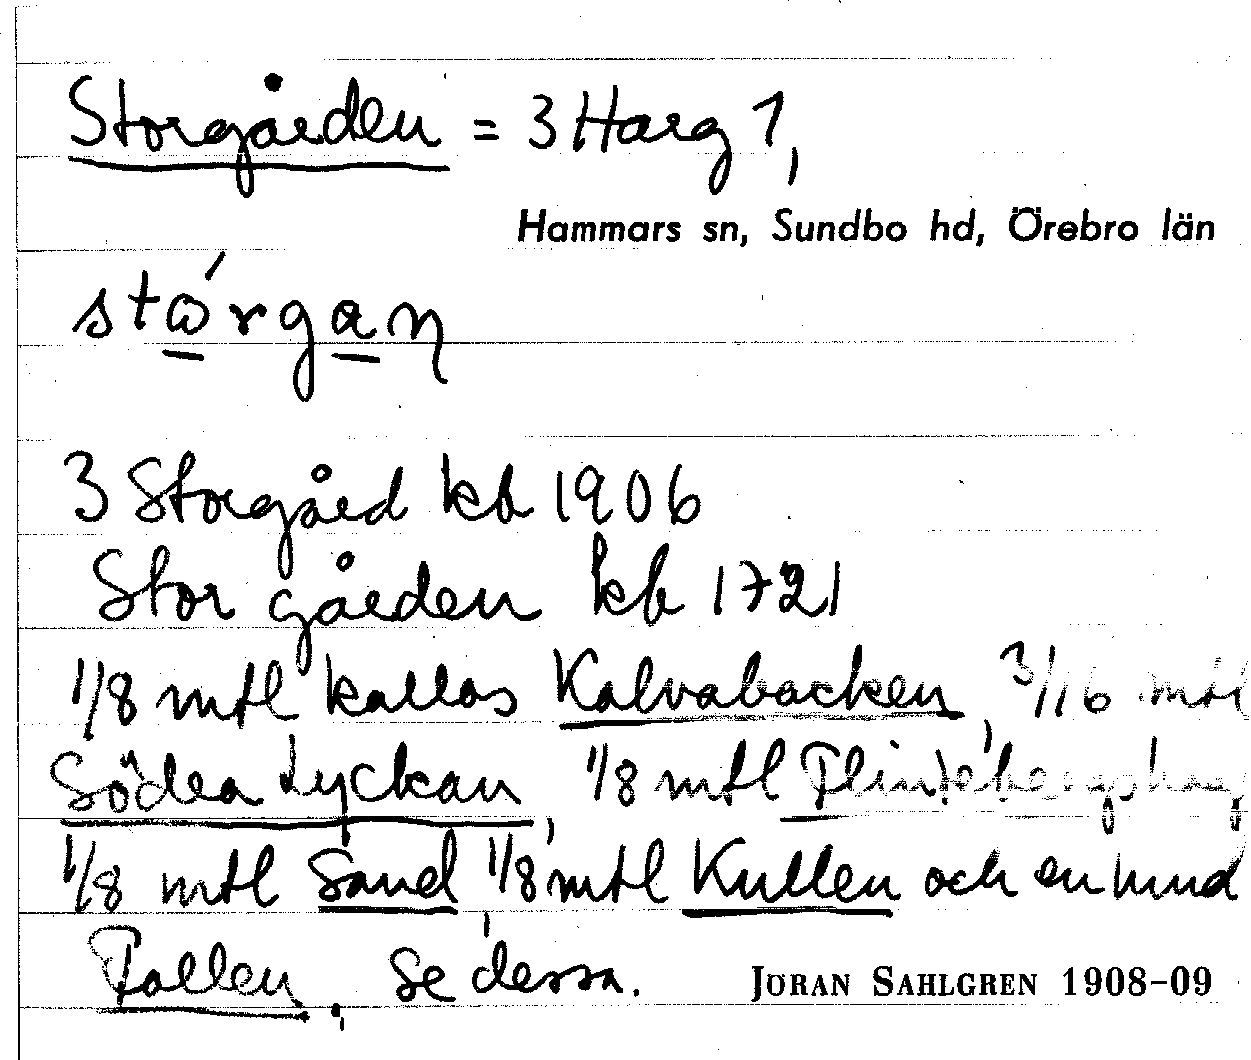 Storgården = 3 Harg 1,
Hammars sn, Sundbo hd, Örebro län
stώrgan̡
3 Storgård kb 1906
Storgården kb 1721
1/8 mtl kallas Kalvabacken, 3/16 mtl
Södra Lyckan, 1/8 mtl
1/8 mtl Sand, 1/8 mtl Kullen och en
Tallen, Se dessa.
JÖRAN SAHLGREN 1908–09